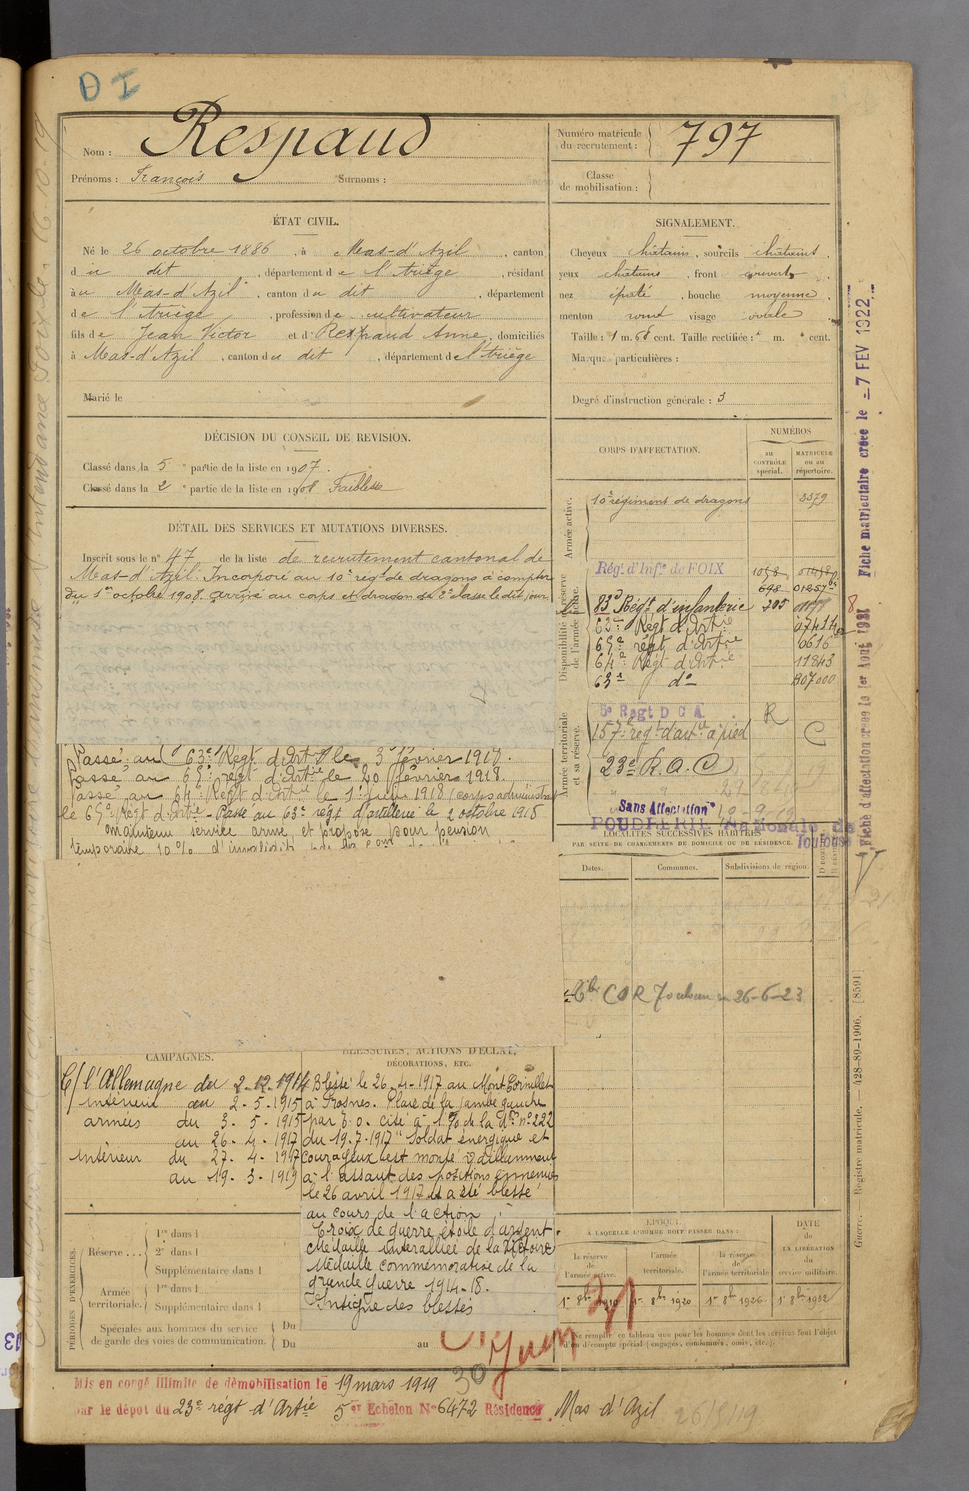 D I
Nom : Respaud
Prénoms : François Surnoms :
Numéro matricule du recrutement : 797
Classe de mobilisation :
ÉTAT CIVIL.
Né le 26 octobre 1886, à Mas-d'Azil, canton
du dit, département de l'Ariège, résidant
à u Mas-d'Azil, canton du dit, département
de l'Ariège, profession de cultivateur
fils de Jean Victor et d' Respaud Anne, domiciliés
à Mas-d'Azil, canton du dit, département de l'Ariège
Marié le
SIGNALEMENT.
Cheveux châtain, sourcils châtains,
yeux châtains, front couvert,
nez épaté, bouche moyenne,
menton rond visage ovale
Taille : 1 m. 68 cent. Taille rectifiée : " m. " cent.
Marques particulières :
Degré d'instruction générale : 3
DÉCISION DU CONSEIL DE REVISION.
Classé dans la 5 e partie de la liste en 1907.
Classé dans la 2 e partie de la liste en 1908 Faiblesse
DÉTAIL DES SERVICES ET MUTATIONS DIVERSES.
Inscrit sous le n° 47 de la liste de recrutement cantonal de
Mas-d'Azil. Incorporé au 10e régt de dragons à compter
du 1er octobre 1908. Arrivé au corps et dragon de 2e classe le dit jour
Passé au 63e Régt d'Artie le 3 février 1918.
Passé au 65e régt d'Artie le 20 février 1918.
Passé au 64e Régt d'Artie le 1er juin 1918 (corps administrat
le 65e Régt d'Artie - Passé au 63e régt d'artillerie le 2 octobre 1918
maintenu service armé, et proposé pour pension
temporaire 10% d'invalidité
CORPS D'AFFECTATION.
NUMÉROS
au contrôle spécial.
MATRICULE ou au répertoire.
Armée active.
10e régiment de dragons 3579
Disponibilité et réserve de l'armée active.
Régt d'Infie de FOIX 1058
698 01257
83e Régt d'infanterie 205
62e Régt d'Artie
65e régt d'Artie 0616
64e Régt d'Artie 11843
63e do
Armée territoriale et sa réserve.
5e Regt D C A R
157e régt d'artie à pied C
23e R. A. C
Sans Affectation
POUDRERIE Nationale de Toulouse
LOCALITÉS SUCCESSIVES HABITÉES
PAR SUITE DE CHANGEMENTS DE DOMICILE OU DE RÉSIDENCE.
Dates. Communes. Subdivisions de région.
COR Toulouse 26-6-23
CAMPAGNES.
C/ l'Allemagne du 2-12-1914
intérieur au 2-5-1915
armées du 3-5-1915
au 26-4-1917
intérieur du 27-4-1917
au 19-3-1919
BLESSURES, ACTIONS D'ÉCLAT, DÉCORATIONS, ETC.
Blessé le 26-4-1917 au Mont Cornillet
à Prosnes. Plaie de la jambe gauche
par E.O. cité à l'O/ de la Don n° 222
du 19-7-1917 "Soldat énergique et
courageux est monté vaillamment
à l'assaut des positions ennemies
le 26 avril 1917 et a été blessé
au cours de l'action."
Croix de guerre étoile d'argent
Médaille interalliée de la Victoire
Médaille commémorative de la
grande guerre 1914-18.
Insigne des blessés
PÉRIODES D'EXERCICES.
Réserve ... 1re dans l
2e dans l
Supplémentaire dans l
Armée territoriale. 1re dans l
Supplémentaire dans l
Spéciales aux hommes du service de garde des voies de communication. Du
Du au
ÉPOQUE À LAQUELLE L'HOMME DOIT PASSER DANS :
la réserve de l'armée active. l'armée territoriale. la réserve de l'armée territoriale
DATE de LA LIBÉRATION du service militaire.
1er 8bre 1910 1er 8bre 1920 1er 8bre 1926 1er 8bre 1932
Ne remplir ce tableau que pour les hommes dont les services font l'objet d'un décompte spécial (engagés, condamnés, omis, etc.).
30
Mis en congé illimité de démobilisation le 19 mars 1919
par le dépôt du 23e régt d'Artie 5er Echelon N° 6472 Résidence Mas d'Azil
Fiche matriculaire créée le -7 FEV 1922
Fiche d'affectation créée le 1er Août 1931
Guerre. — Registre matricule. — 428-89-1906. [8591]